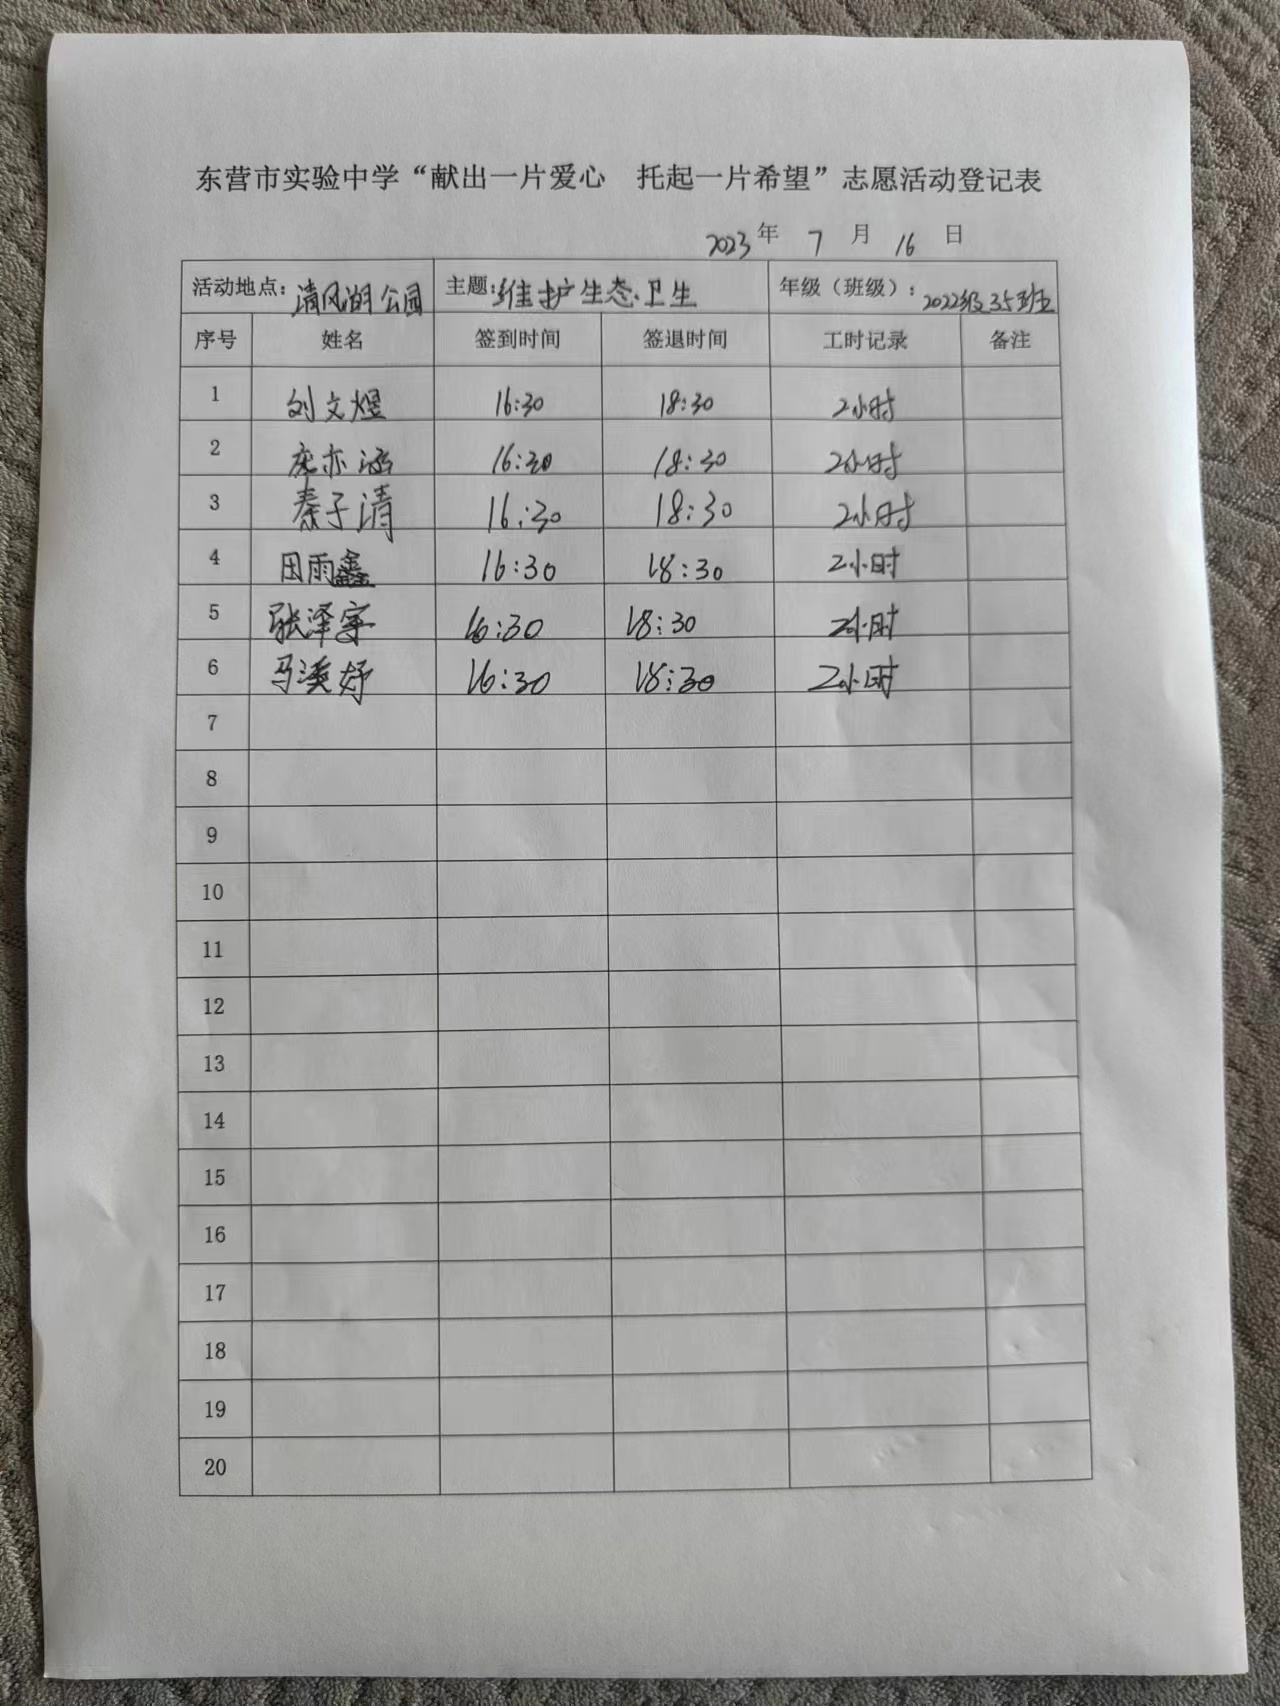 东营市实验中学“献出一片爱心 托起一片希望”志愿活动登记表
2023年 7 月 16 日
活动地点：清风湖公园 主题：维护生态卫生 年级（班级）：2022级35班
序号 姓名 签到时间 签退时间 工时记录 备注
1 刘文煜 16:30 18:30 2小时
2 庞亦涵 16:30 18:30 2小时
3 秦子清 16:30 18:30 2小时
4 田雨鑫 16:30 18:30 2小时
5 张泽宇 16:30 18:30 2小时
6 马溪妤 16:30 18:30 2小时
7
8
9
10
11
12
13
14
15
16
17
18
19
20